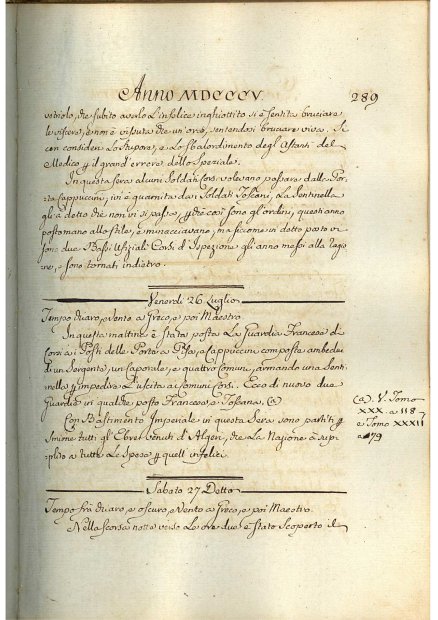 Anno MDCCCV.
289
vediolo, che subito avalo L'infelice inghiottito si è sentita bruciare
le viscere, e mm è visputa che un'ora, sentendosi bruciare viva. Si
con consideri Lo stupore, e Lo sbalordimento degli Astanti del
Medico, e il grand'errore dello Speziale.
In questa sera alcuni Soldati Corsi volevano passare dalla Por-
ta Cappuccini, ivi è quarnita da Soldati Toscani, La Sentinella
gli à detto che non vi si passa, che così sono gl'ordini, questi anno
posto mano allo stile, e minacciavano, ma siccome in detto posto vi
sono due Bassi Ufiziali Corsi d'Ispezione gli anno messi alla ragio
ne, e sono tornati indietro.
Venerdì 26 Luglio
Tempo chiaro, e Vento a Greco, e poi Maestro.
In questa mattina è stata posta La Guardia Francese di
Corsi ai Posti delle Porte a Pisa, e Cappuccini composte ambedue
di un Sergente, un Caporale, e quattro Comuni, armando una Senti
nella per impedire L'uscita ai Comuni Corsi. Ecco di nuovo due
Guardie in qualche posto Francese, e Toscana. (a)
(a) V. Tomo
XXX. a 118
e Tomo XXXII
a 179
Con Bastimento Imperiale in questa Sera sono partiti per
Smirne tutti gli Ebrei venuti d'Algeri, che La Nazione à sup-
plito a tutte Le Spese per quell'infelici.
Sabato 27 Detto
Tempo frà chiaro, e oscuro, e Vento a Greco, e poi Maestro.
Nella scorsa notte verso Le ore due è stato scoperto il